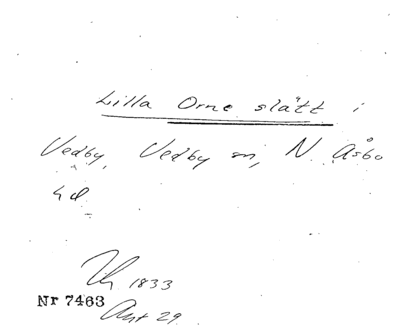 Lilla Orne slätt i
Vedby, Vedby sn, N. Åsbo
hd
1833
Nr 7463
Ant 29.